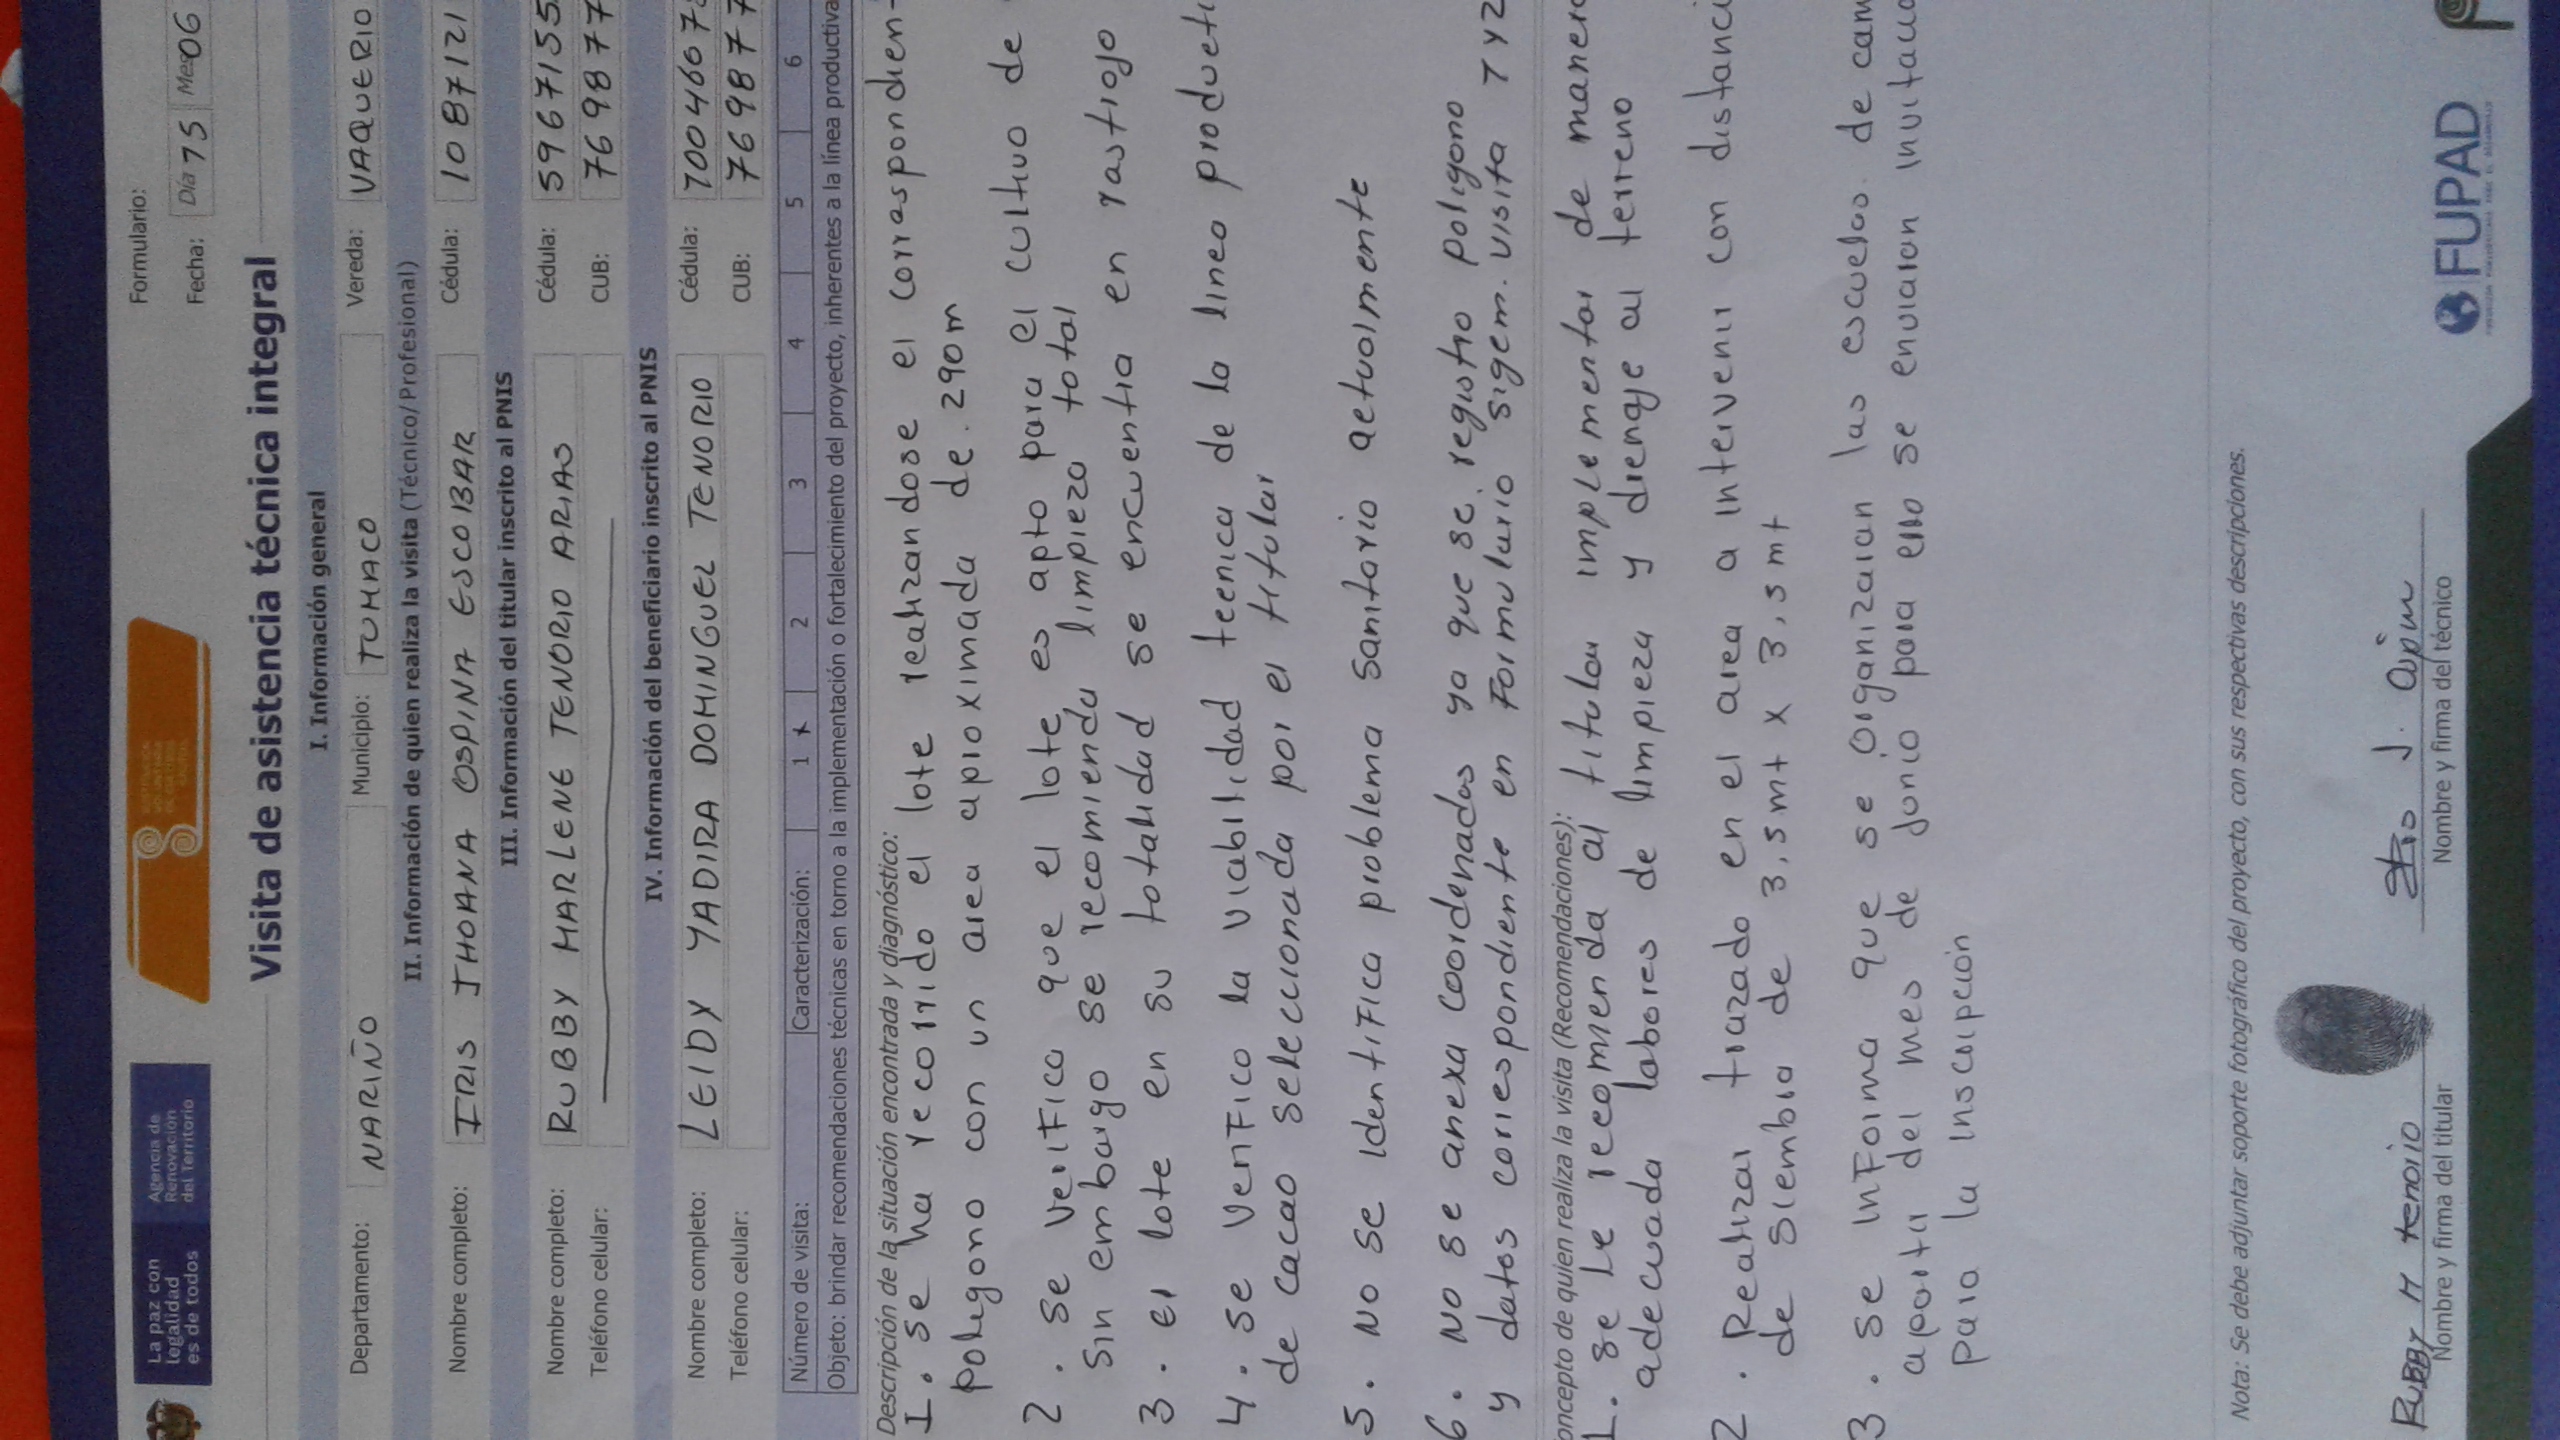 La paz con
legalidad
es de todos
Agencia de
Renovación
del Territorio
Formulario:
Fecha: Día 15 Mes 06
Visita de asistencia técnica integral
I. Información general
Departamento: NARIÑO Municipio: TUMACO Vereda: VAQUERIO
II. Información de quien realiza la visita (Técnico/Profesional)
Nombre completo: IRIS JHOANA OSPINA ESCOBAR Cédula: 1087121
III. Información del titular inscrito al PNIS
Nombre completo: RUBBY MARLENE TENORIO ARIAS Cédula: 5967155
Teléfono celular: CUB: 769877
IV. Información del beneficiario inscrito al PNIS
Nombre completo: LEIDY YADIRA DOMINGUEZ TENORIO Cédula: 1004607
Teléfono celular: CUB: 769877
Número de visita: Caracterización: 1 x 2 3 4 5 6
Objeto: brindar recomendaciones técnicas en torno a la implementación o fortalecimiento del proyecto, inherentes a la línea productiva
Descripción de la situación encontrada y diagnóstico:
1. se ha recorrido el lote realizandose el correspondien-
poligono con un area aproximada de. 290m
2. se verifico que el lote es apto para el cultivo de
sin embargo se recomienda limpieza total
3. el lote en su totalidad se encuentra en rastrojo
4. se verifico la viabilidad tecnica de la linea producti
de cacao seleccionada por el titular
5. NO se identifica problema sanitario actualmente
6. NO se anexa coordenadas ya que se. registro poligono
y datos correspondiente en Formulario sigem. visita 1 y 2
oncepto de quien realiza la visita (Recomendaciones):
1. se le recomienda al titular implementar de manera
adecuada labores de limpieza y drenaje al terreno
2. Realizar trazado en el area a intervenir con distanci
de siembra de 3,5mt x 3,5mt
3. se informa que se organizaran las escuelas. de cam
apartir del mes de Junio para ello se enviaran invitacio
para la inscripción
Nota: Se debe adjuntar soporte fotográfico del proyecto, con sus respectivas descripciones.
RUBBY M tenorio
Nombre y firma del titular
Nombre y firma del técnico
FUPAD